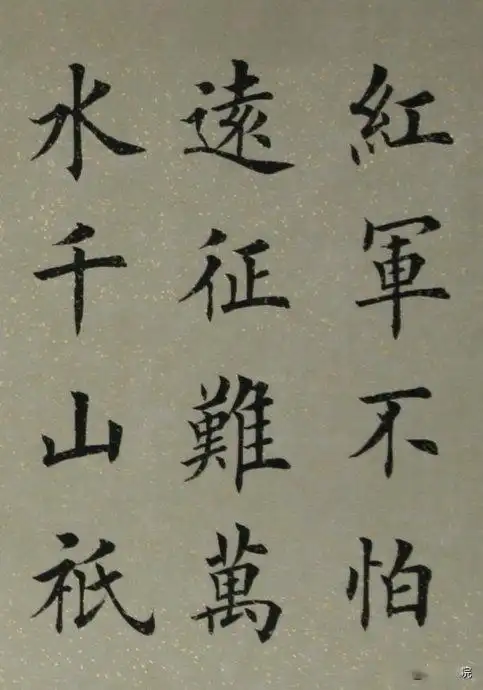 紅軍不怕
遠征難萬
水千山祇